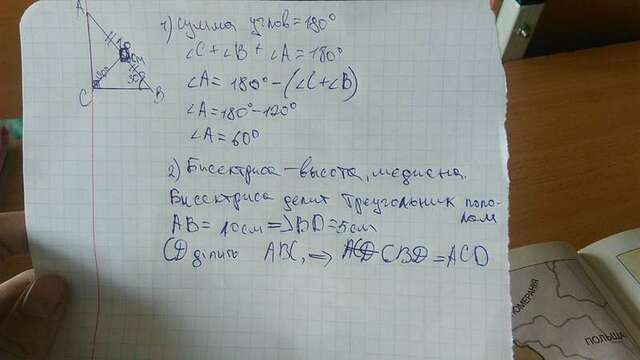 A
C
B
1) Сумма углов = 180°
∠C + ∠B + ∠A = 180°
∠A = 180° - (∠C + ∠B)
∠A = 180° - 120°
∠A = 60°
2) Бисектриса - высота, медиана.
Бисектриса делит треугольник попо-
лам
AB = 10см => BD = 5см
CD ділить ABC, => CBD = ACD
ПОМЕРАНИЯ
ПОЛЬША